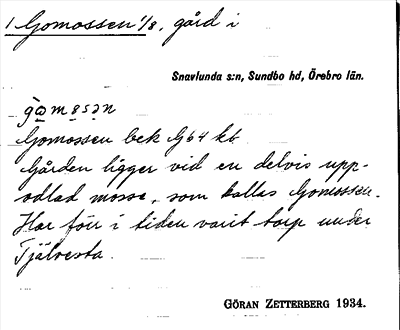 1 Gomossen 1/8, gård i
Snavlunda s:n, Sundbo hd, Örebro län.
gòmᴕsən
Gomossen bek G 64 kb.
Gården ligger vid en delvis upp-
odlad mosse, som kallas Gomossen.
Har förr i tiden varit torp under
Tjälvesta.
GÖRAN ZETTERBERG 1934.